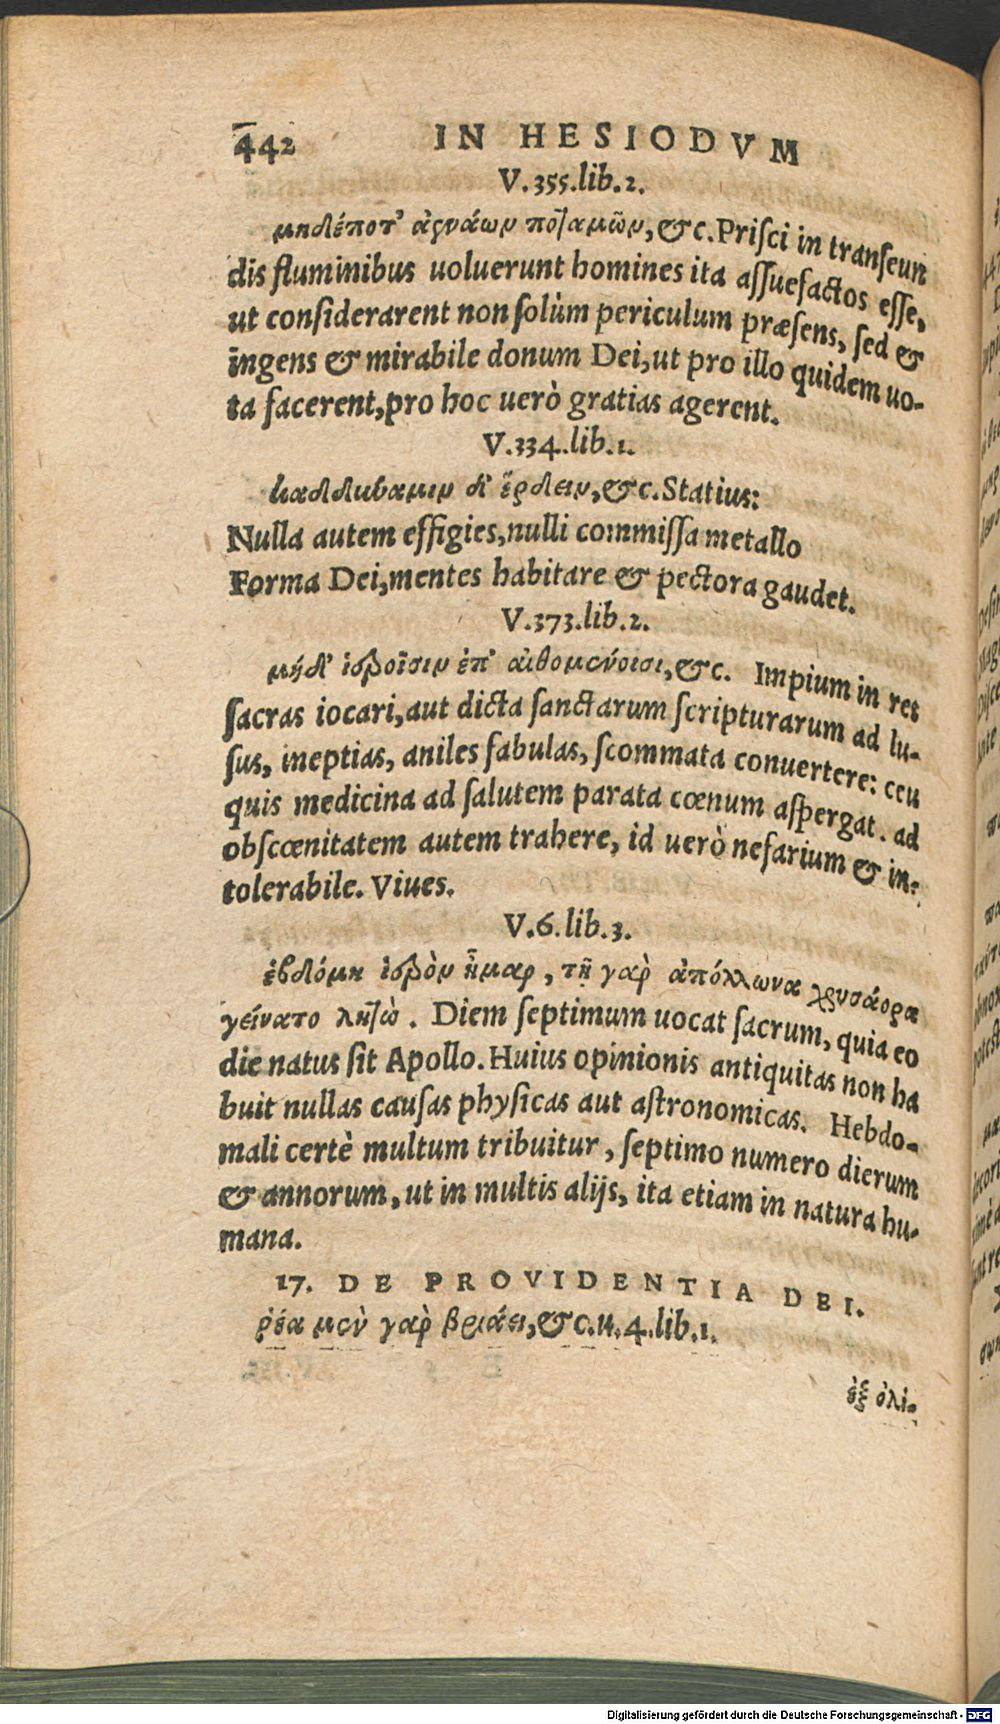 442 IN HESIODVM
V.355.lib.2.
μηδέποτ' ἀενάων ποταμῶν, &c. Priſci in tranſeun
dis fluminibus uoluerunt homines ita aſſuefactos eſſe,
ut conſiderarent non ſolùm periculum præſens, ſed &
ingens & mirabile donum Dei, ut pro illo quidem uo-
ta facerent, pro hoc uerò gratias agerent.
V.334.lib.1.
καδδύναμιν δ' ἔρδειν, &c. Statius:
Nulla autem effigies, nulli commiſſa metallo
Forma Dei, mentes habitare & pectora gaudet.
V.373.lib.2.
μήδ' ἱεροῖσιν ἐπ' αἰθομένοισι, &c. Impium in res
ſacras iocari, aut dicta ſanctarum ſcripturarum ad lu-
ſus, ineptias, aniles fabulas, ſcommata conuertere: ceu
quis medicina ad ſalutem parata cœnum aſpergat. ad
obſcœnitatem autem trahere, id uerò nefarium & in-
tolerabile. Viues.
V.6.lib.3.
ἑβδόμη ἱερὸν ἦμαρ, τῇ γὰρ ἀπόλλωνα χρυσάορα
γείνατο λητὼ. Diem ſeptimum uocat ſacrum, quia eo
die natus ſit Apollo. Huius opinionis antiquitas non ha
buit nullas cauſas phyſicas aut aſtronomicas. Hebdo-
mali certè multum tribuitur, ſeptimo numero dierum
& annorum, ut in multis alijs, ita etiam in natura hu-
mana.
17. DE PROVIDENTIA DEI.
ῥέα μὲν γὰρ βριάει, &c. u. 4. lib. 1.
ἐξ ὀλί-
Digitalisierung gefördert durch die Deutsche Forschungsgemeinschaft - DFG